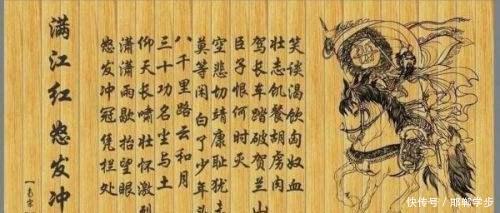 满江红 怒发冲
怒发冲冠凭栏处
潇潇雨歇抬望眼
仰天长啸壮怀激
三十功名尘与土
八千里路云和月
莫等闲白了少年头
空悲切靖康耻犹
臣子恨何时灭
驾长车踏破贺兰山
壮志饥餐胡虏肉
笑谈渴饮匈奴血
快传号 / 邯郸学步